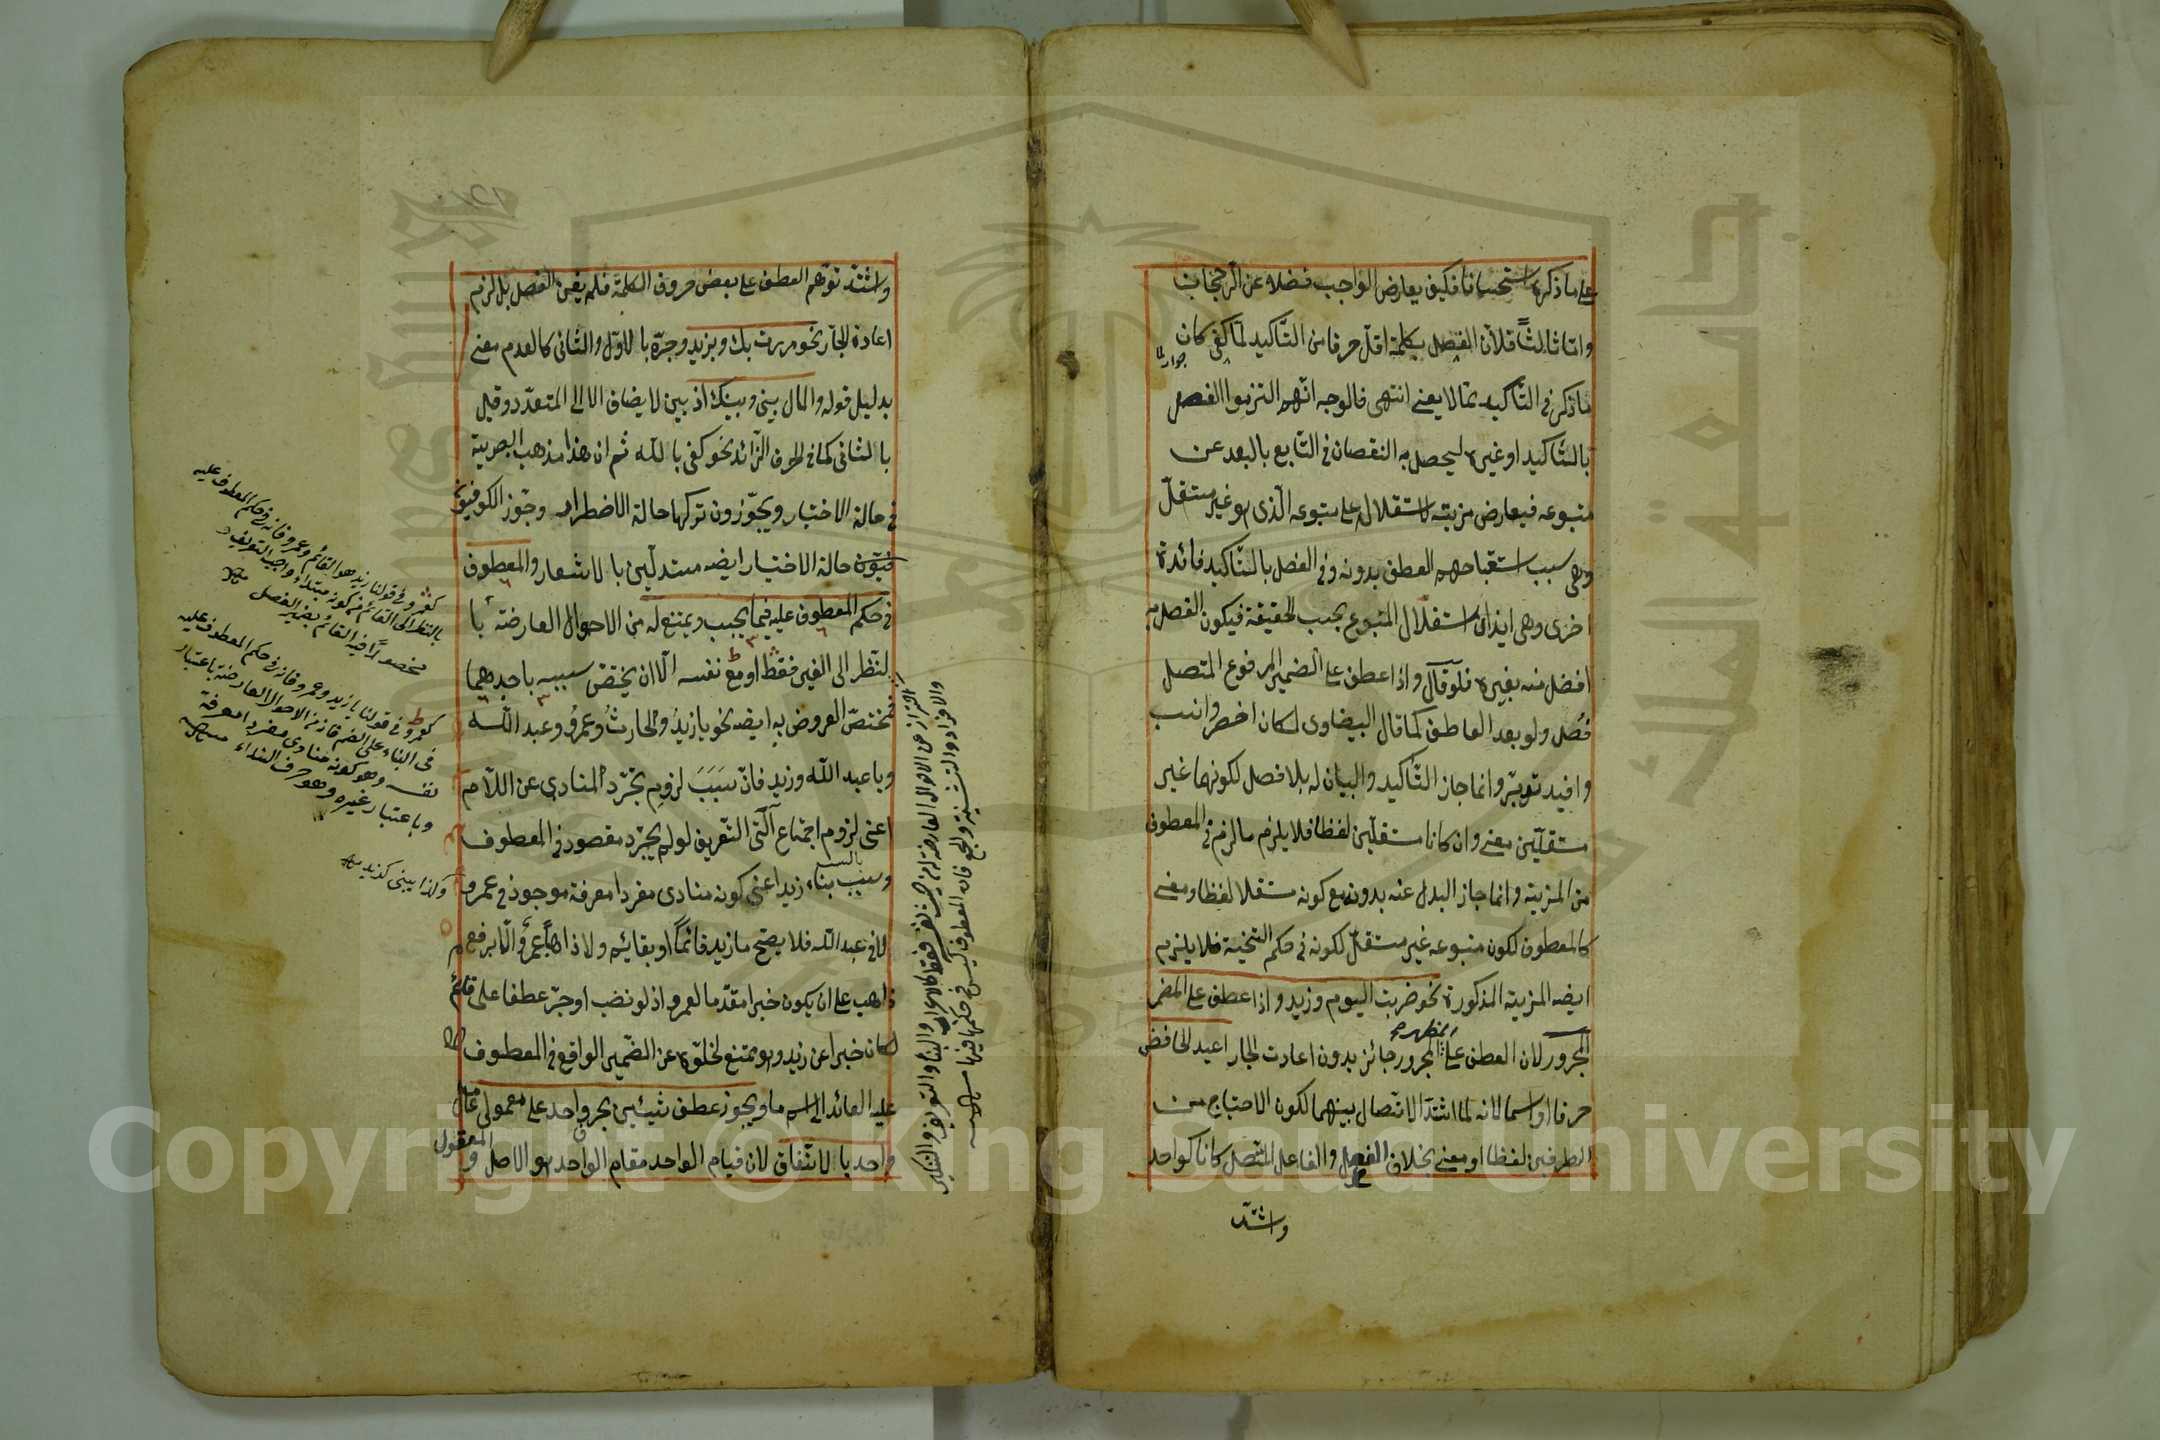 على ما ذكره استحسانا فكيف يعارض الواجب فضلا عن الرجحان
واما ثالثا فلان الفصل بكلمة اقل حرفا من التاكيد لما كفى كان
جواز
ما ذكر في التاكيد مما لا يعنى انتهى فالوجه انهم التزموا الفصل
بالتاكيد او غيره ليحصل به النقصان في التابع بالبعد عن
متبوعه فيعارض مزية استقلاله على متبوعه الذى هو غير مستقل
وهى سبب استقباحهم العطف بدونه وفي الفصل بالتاكيد فائدة
اخرى وهى ايذان استقلال المتبوع بحسب الحقيقة فيكون الفصل به
افضل منه بغيره فلو قال واذا عطف على الضمير المرفوع المتصل
فصل ولو بعد العاطف كما قال البيضاوى لكان اخصر وانسب
وافيد تدبر وانما جاز التاكيد والبيان له بلا فصل لكونهما غير
مستقلين معنى وان كانا مستقلين لفظا فلا يلزم ما لزم في المعطوف
من المزية وانما جاز البدل عنه بدونه مع كونه مستقلا لفظا ومعنى
كالمعطوف لكون متبوعه غير مستقل لكونه في حكم التنحية فلا يلزم
ايضه المزية المذكورة نحو ضربت اليوم وزيد واذا عطف على المضمر
المجرور لان العطف على المظهر المجرور جائز بدون اعادت الجار اعيد الخافض
حرفا او اسما لانه لما اشتد الاتصال بينهما لكون الاحتياج من
الطرفين لفظا او معنى بخلاف الفعل والفاعل المتصل كانا كواحد
واشتد
واشتد توهم العطف على بعض حروف الكلمة فلم يغن الفصل بل لزم
اعادة الجار نحو مررت بك وبزيد وجره بالاول والثانى كالعدم معنى
بدليل قوله والمال بينى وبينك اذ بين لا يضاف الا الى المتعدد وقيل
بالثانى كما في الحرف الزائد نحو كفى بالله ثم ان هذا مذهب البصرية
في حالة الاختيار ويجوزون تركها حالة الاضطرار وجوز الكوفيون
حالة الاختيار ايضه مستدلين بالاشعار والمعطوف
في حكم المعطوف عليه فيما يجب ويمتنع له من الاحوال العارضة با
لنظر الى الغير فقط او مع نفسه الا ان يختص سببه باحدهما
فيختص العروض به ايضه نحو يا زيد والحارث وعمرو وعبد الله
ويا عبد الله وزيد فان سبب لزوم تجرد المنادى عن اللام
اعنى لزوم اجتماع آلتى التعريف لو لم يجرد مفقود في المعطوف
وسبب بناء زيد اعنى كونه منادى مفردا معرفة موجود في عمرو
لا في عبد الله فلا يصح ما زيد قائما او بقائم ولا ذاهبا عمرو الا برفع
ذاهب على ان يكون خبرا مقدما لعمرو اذ لو نصب او جر عطفا على قائم
لكان خبرا عن زيد وهو ممتنع لخلوه عن الضمير الواقع في المعطوف
عليه العائد الى اسم ما ويجوز عطف شيئين بحرف واحد على معمولى عامل
واحد بالاتفاق لان قيام الواحد مقام الواحد هو الاصل والمعقول
كعمرو في قولنا زيد هو القائم وعمرو فانه في حكم المعطوف عليه
كعمرو في قولنا يا زيد وعمرو فانه في حكم المعطوف عليه
في البناء على الضم فانه من الاحوال العارضة باعتبار
نفسه وهو كونه منادى مفردا معرفة
وباعتبار غيره وهو حرف النداء
احتراز عن الاحوال العارضة له من حيث نفسه فقط كالاعراب والبناء والتعريف والتنكير
والافراد والتثنية والجمع فان المعطوف ليس في حكمه فيها
Copyright © King Saud University